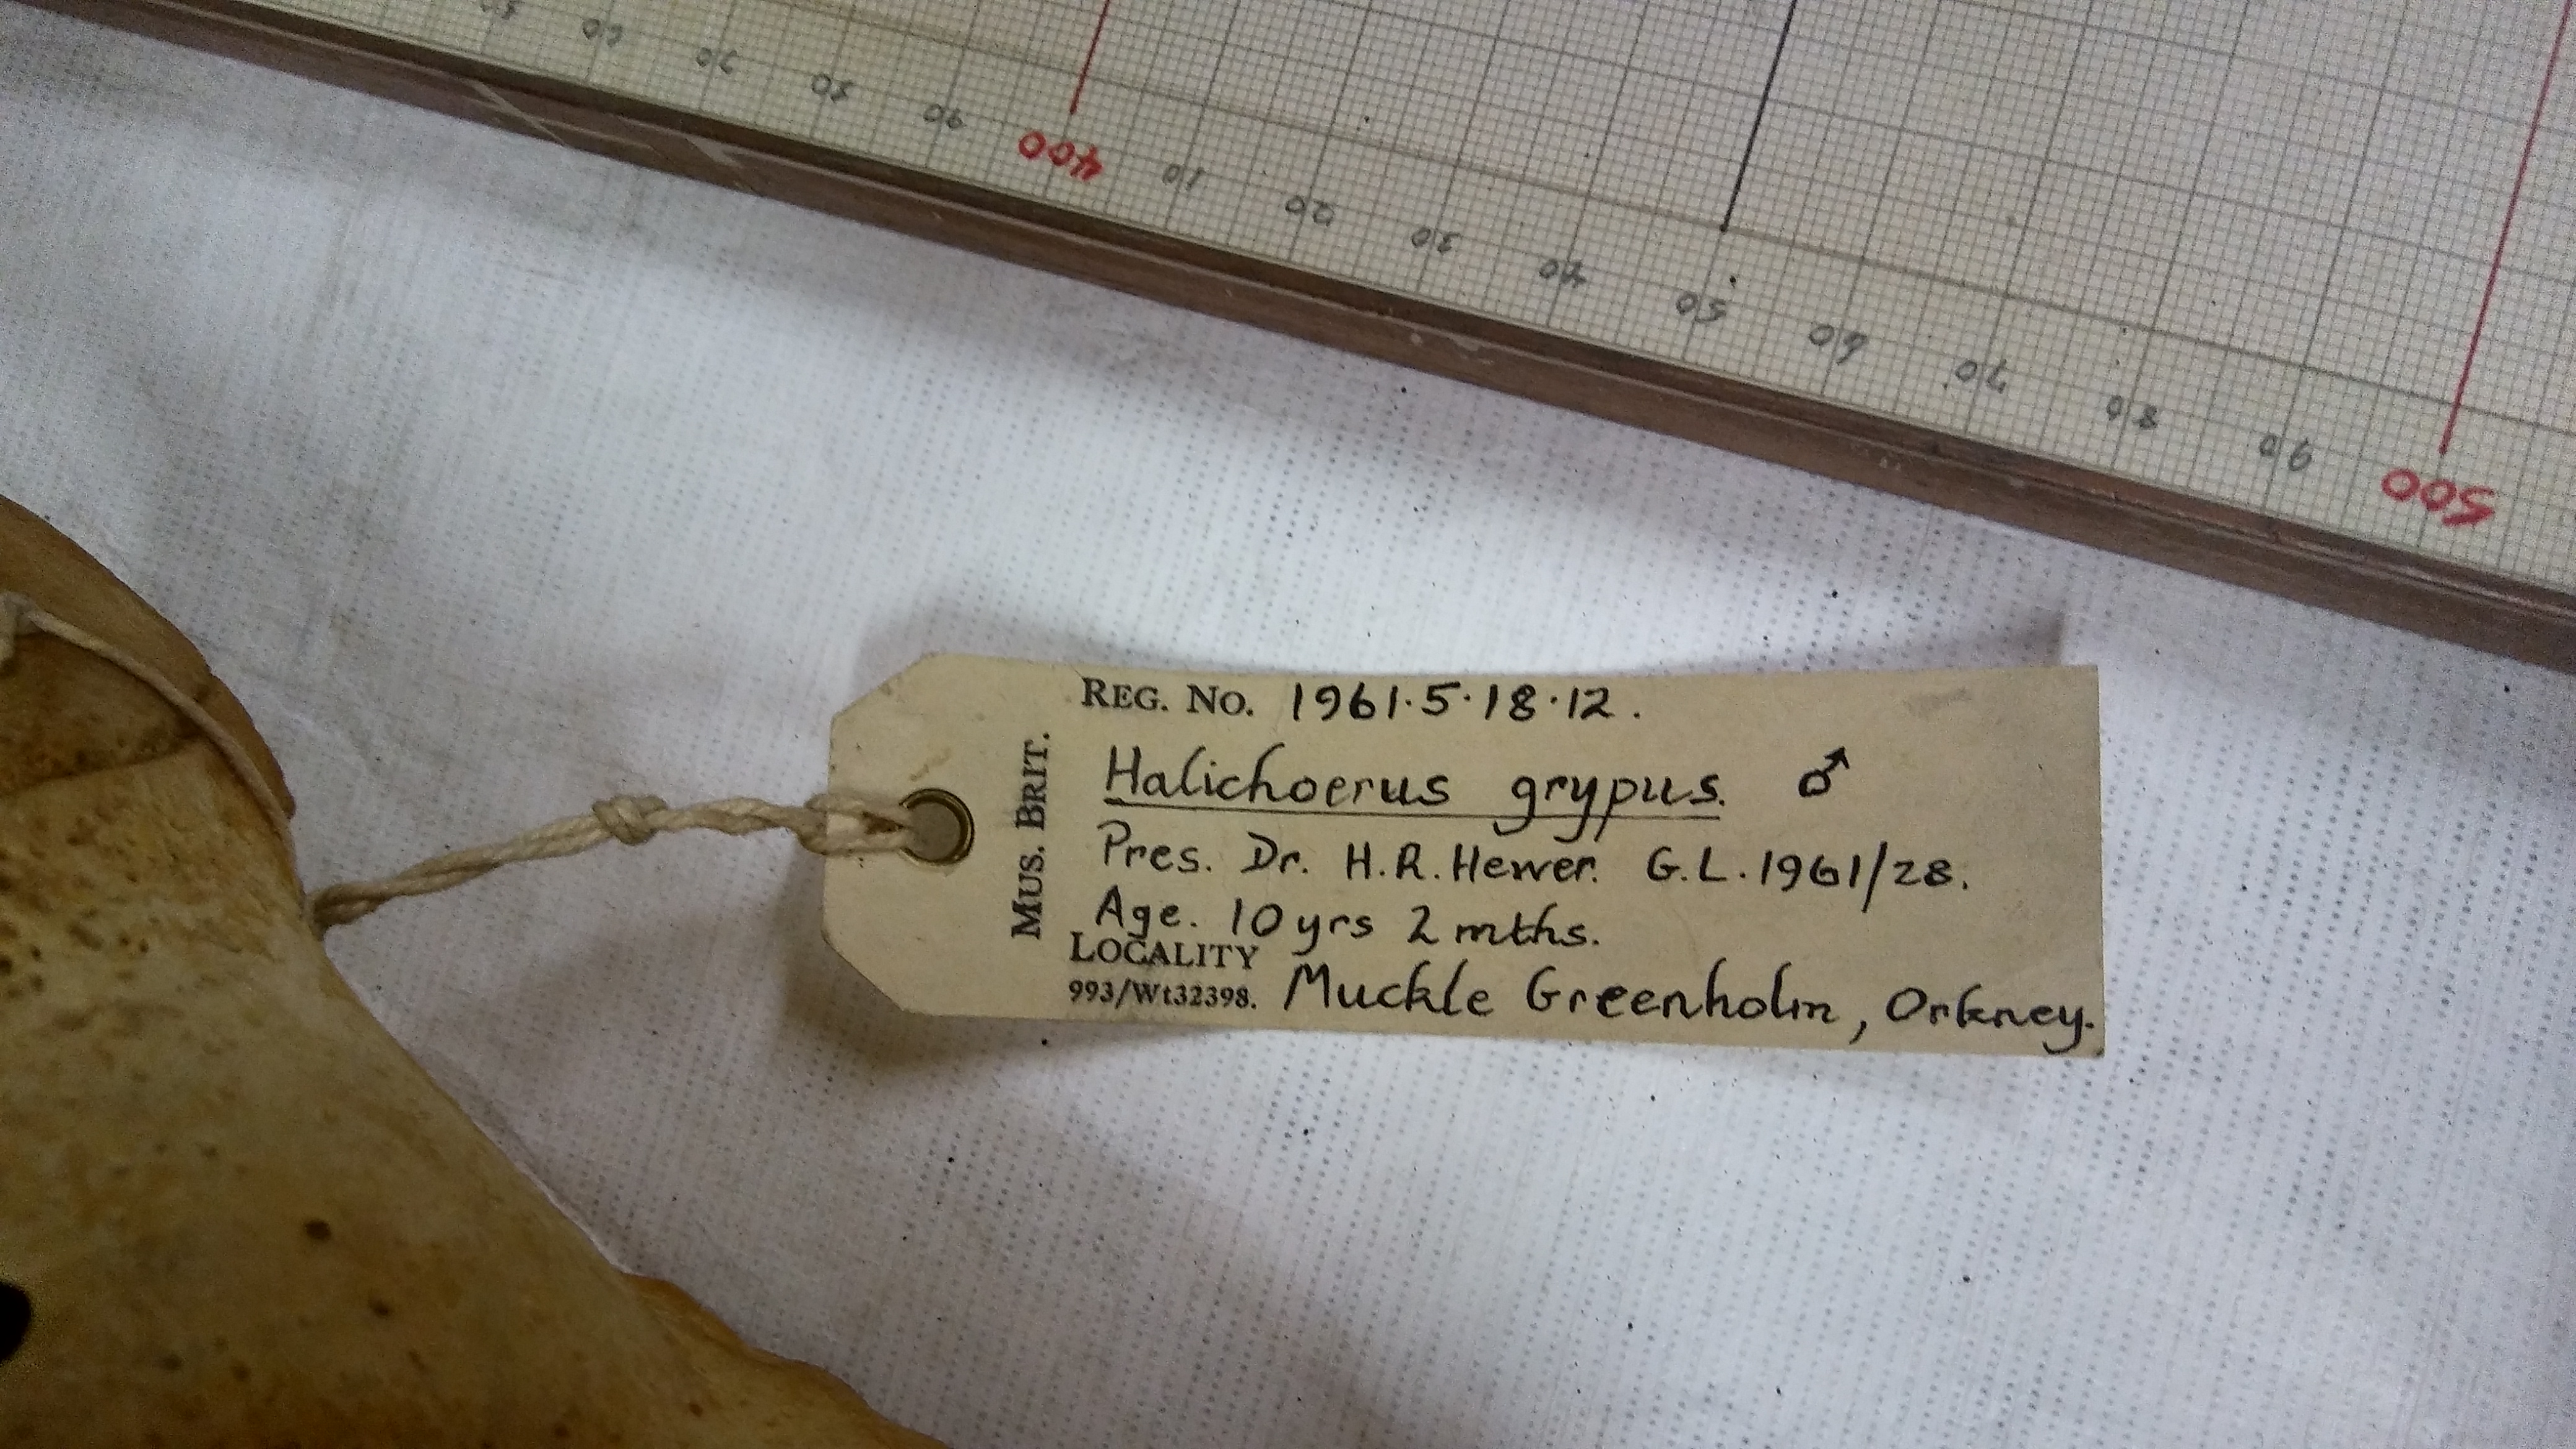 MUS. BRIT.
REG. NO. 1961.5.18.12.
Halichoerus grypus. ♂
Pres. Dr. H.R. Hewer. G.L. 1961/28.
Age. 10 yrs 2 mths.
LOCALITY Muckle Greenholm, Orkney.
993/Wt32398.
60
70
80
90
400
10
20
30
40
50
60
70
80
90
500